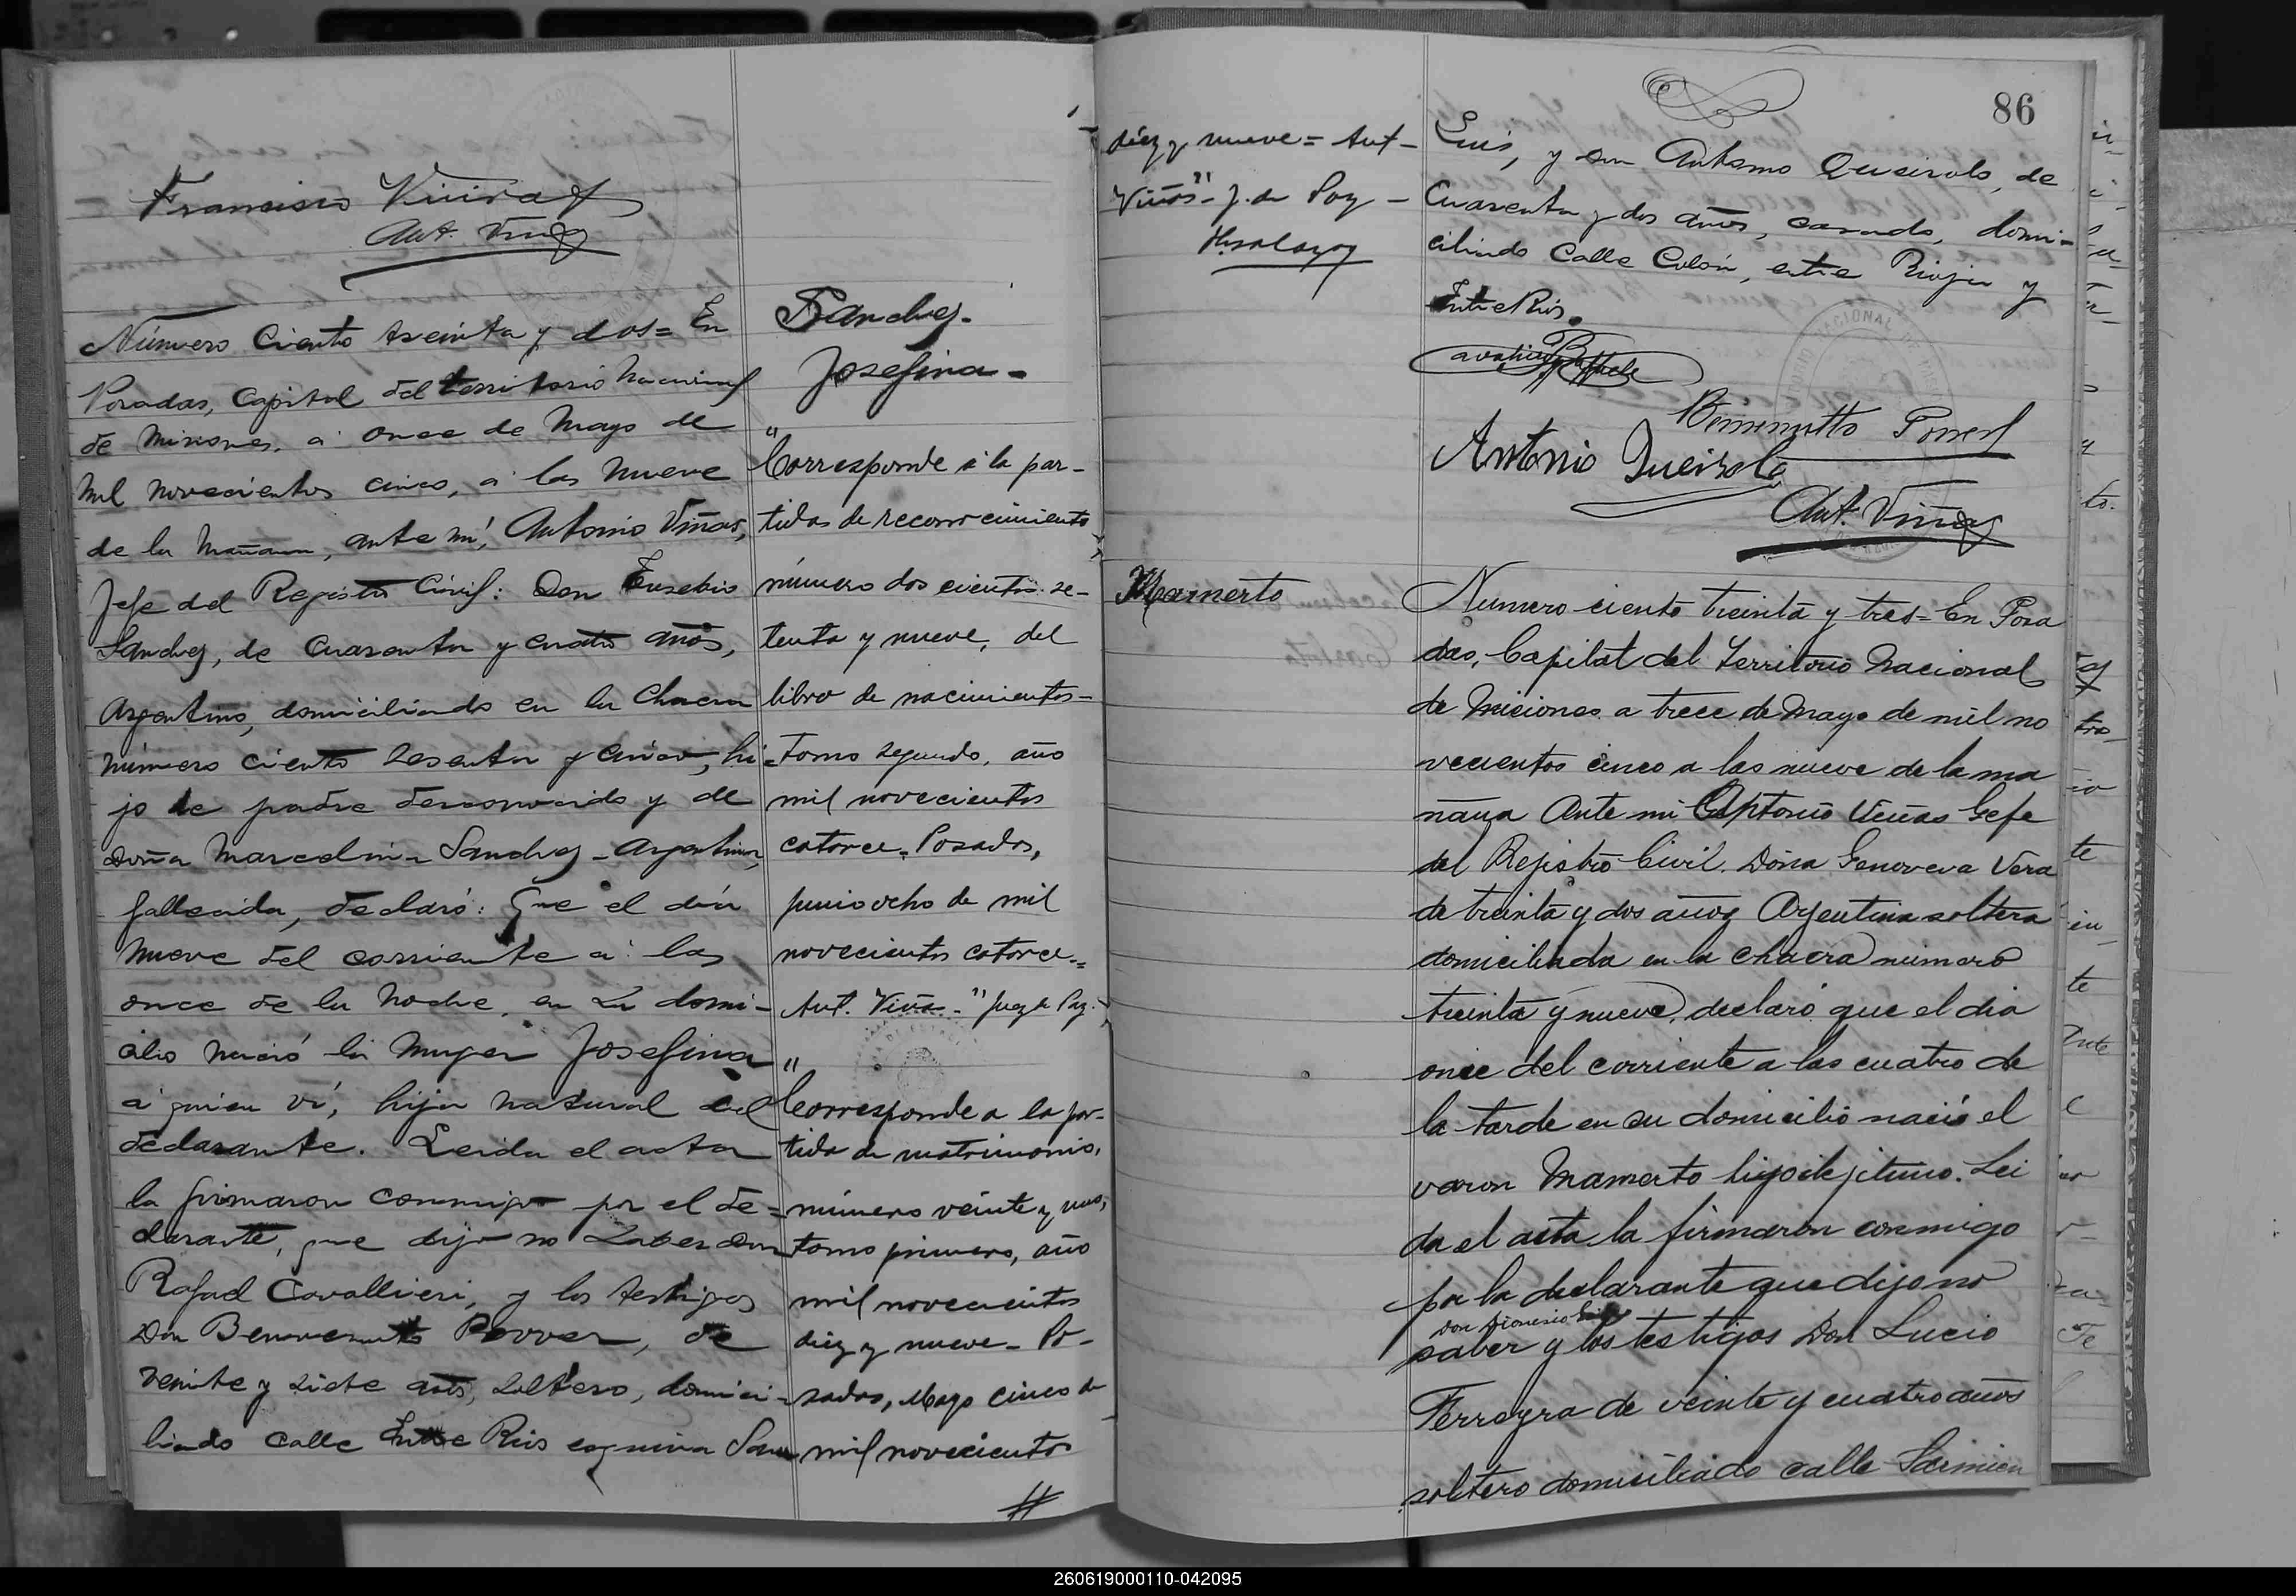 Francisco
Ant. Viñas
Número Ciento treinta y dos = En
Posadas, Capital del territorio Nacional
de Misiones, á once de Mayo de
mil novecientos cinco, á las nueve
de la mañana, ante mí, Antonio Viñas,
Jefe del Registro Civil: Don Eusebio
Sanchez, de cuarenta y cuatro años,
Argentino, domiciliado en la Chacra
número ciento sesenta y cinco, hi-
jo de padre desconocido y de
Doña Marcelina Sanchez - Argentina,
fallecida, declaró: Que el día
nueve del corriente á las
once de la noche, en su domi-
cilio nació la mujer Josefina
á quien ví, hija natural del
declarante. Leida el acta
la firmaron conmigo por el de-
clarante, que dijo no saber Don
Rafael Cavallieri, y los testigos
Don Benvenuto Porver, de
veinte y siete años, soltero, domici-
liado calle Entre Rios esquina San
Sanchez.
Josefina -
"
Corresponde á la par-
tidas de reconocimiento
número dos cientos se-
tenta y nueve, del
libro de nacimientos -
Tomo segundo, año
mil novecientos
catorce. Posadas,
junio ocho de mil
novecientos catorce =
Ant. Viñas " Juez de Paz.
"
Corresponde a la par-
tida de matrimonio,
número veinte y uno,
tomo primero, año
mil novecientos
diez y nueve - Po-
sadas, Mayo cinco de
mil novecientos
#
diez y nueve = Ant -
Viñas" - J. de Paz -
86
Luis, y don Antonio Queirolo, de
Cuarenta y dos años, casado, domi-
ciliado Calle Colón, entre Rioja y
Entre Rios.
Antonio Queirolo
Ant. Viñas
Mamerto
Numero ciento treinta y tres = En Posa
das, Capital del Territorio Nacional
de Miciones a trece de Mayo de mil no
vecientos cinco a las nueve de la ma
ñana Ante mi Antonio Viñas Gefe
del Registro Civil. Doña Genoveva Vera
de treinta y dos años Argentina soltera
domiciliada en la chacra numero
treinta y nueve, declaró que el dia
once del corriente a las cuatro de
la tarde en su domicilio nació el
varon Mamerto hijo ilejitimo. Lei
da el acta la firmaron conmigo
por la declarante que dijo no
Don Dionisio
saber y los testigos Don Lucio
Ferreyra de veinte y cuatro años
soltero domiciliado calle Sarmien
260619000110-042095